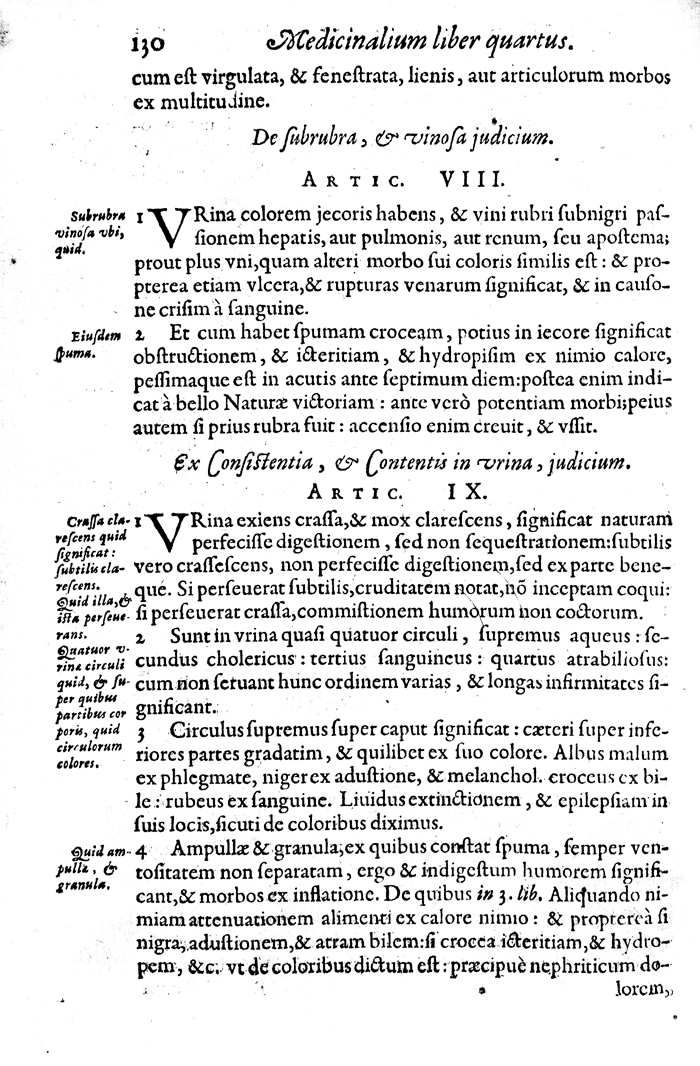 130 Medicinalium liber quartus.
cum eſt virgulata, & feneſtrata, lienis, aut articulorum morbos
ex multitudine.
De ſubrubra, & vinoſa judicium.
ARTIC. VIII.
Subrubra
vinoſa vbi,
quid.
1 VRina colorem jecoris habens, & vini rubri ſubnigri paſ-
ſionem hepatis, aut pulmonis, aut renum, ſeu apoſtema;
prout plus vni, quam alteri morbo ſui coloris ſimilis eſt: & pro-
pterea etiam vlcera, & rupturas venarum ſignificat, & in cauſo-
ne criſim à ſanguine.
Eiuſdem
ſpuma.
2 Et cum habet ſpumam croceam, potius in iecore ſignificat
obſtructionem, & icteritiam, & hydropiſim ex nimio calore,
peſſimaque eſt in acutis ante ſeptimum diem: poſtea enim indi-
cat à bello Naturæ victoriam: ante verò potentiam morbi; peius
autem ſi prius rubra fuit: accenſio enim creuit, & vſſit.
Ex Conſiſtentia, & Contentis in vrina, judicium.
ARTIC. IX.
Craſſa cla-
reſcens quid
ſignificat:
ſubtilis cla-
reſcens.
Quid illa, &
iſta perſeue-
rans.
1 VRina exiens craſſa, & mox clareſcens, ſignificat naturam
perfeciſſe digeſtionem, ſed non ſequeſtrationem: ſubtilis
vero craſſeſcens, non perfeciſſe digeſtionem, ſed ex parte bene-
que. Si perſeuerat ſubtilis, cruditatem notat, nō inceptam coqui:
ſi perſeuerat craſſa, commiſtionem humorum non coctorum.
Quatuor v-
rinæ circuli
quid, & ſu-
per quibus
partibus cor
poris, quid
circulorum
colores.
2 Sunt in vrina quaſi quatuor circuli, ſupremus aqueus: ſe-
cundus cholericus: tertius ſanguineus: quartus atrabilioſus:
cum non ſeruant hunc ordinem varias, & longas infirmitates ſi-
gnificant.
3 Circulus ſupremus ſuper caput ſignificat: cæteri ſuper infe-
riores partes gradatim, & quilibet ex ſuo colore. Albus malum
ex phlegmate, niger ex aduſtione, & melanchol. croceus ex bi-
le: rubeus ex ſanguine. Liuidus extinctionem, & epilepſiam in
ſuis locis, ſicuti de coloribus diximus.
Quid am-
pullæ, &
granula.
4 Ampullæ & granula, ex quibus conſtat ſpuma, ſemper ven-
toſitatem non ſeparatam, ergo & indigeſtum humorem ſignifi-
cant, & morbos ex inflatione. De quibus in 3. lib. Aliquando ni-
miam attenuationem alimenti ex calore nimio: & proptereà ſi
nigra, aduſtionem, & atram bilem: ſi crocea icteritiam, & hydro-
pem, &c. vt de coloribus dictum eſt: præcipuè nephriticum do-
lorem,